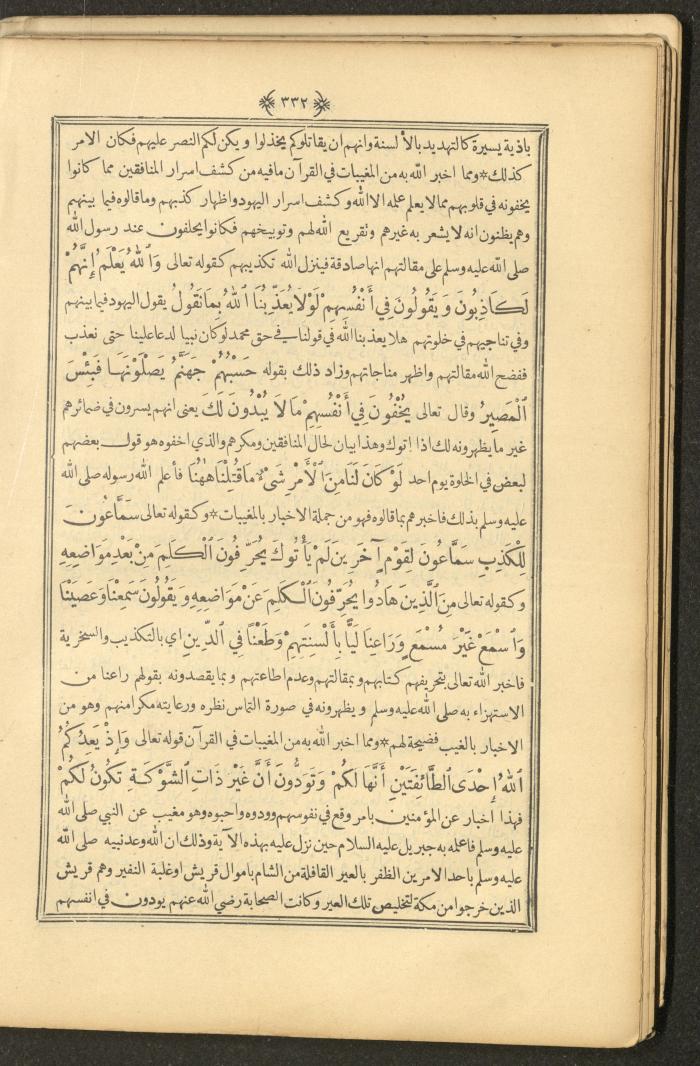 ﴿ ٣٣٢ ﴾
باذية يسيرة كالتهديد بالألسنة وانهم ان يقاتلوكم يخذلوا ويكن لكم النصر عليهم فكان الامر
كذلك * ومما اخبر الله به من المغيبات في القرآن مافيه من كشف اسرار المنافقين مما كانوا
يخفونه في قلوبهم مما لا يعلم علمه الا الله وكشف اسرار اليهود واظهار كذبهم وماقالوه فيما بينهم
وهم يظنون انه لا يشعر به غيرهم وتقريع الله لهم وتوبيخهم فكانوا يحلفون عند رسول الله
صلى الله عليه وسلم على مقالتهم انها صادقة فينزل الله تكذيبهم كقوله تعالى وَٱللهُ يَعْلَمُ إِنَّهُمْ
لَكَاذِبُونَ وَيَقُولُونَ فِي أَنْفُسِهِمْ لَوْلَا يُعَذِّبُنَا ٱللهُ بِمَا نَقُولُ يقول اليهود فيما بينهم
وفي تناجيهم في خلوتهم هلا يعذبنا الله في قولنا في حق محمد لوكان نبيا لدعا علينا حتى نعذب
ففضح الله مقالتهم واظهر مناجاتهم وزاد ذلك بقوله حَسْبُهُمْ جَهَنَّمُ يَصْلَوْنَهَا فَبِئْسَ
ٱلْمَصِيرُ وقال تعالى يُخْفُونَ فِي أَنْفُسِهِمْ مَا لَا يُبْدُونَ لَكَ يعنى انهم يسرون في ضمائرهم
غير ما يظهرونه لك اذا اتوك وهذا بيان لحال المنافقين ومكرهم والذي اخفوه هو قول بعضهم
لبعض في الخلوة يوم احد لَوْ كَانَ لَنَا مِنَ ٱلْأَمْرِ شَىْءٌ مَا قُتِلْنَا هٰهُنَا فأعلم الله رسوله صلى الله
عليه وسلم بذلك فاخبرهم بما قالوه فهو من جملة الاخبار بالمغيبات * وكقوله تعالى سَمَّاعُونَ
لِلْكَذِبِ سَمَّاعُونَ لِقَوْمٍ آخَرِينَ لَمْ يَأْتُوكَ يُحَرِّفُونَ ٱلْكَلِمَ مِنْ بَعْدِ مَوَاضِعِهِ
وكقوله تعالى مِنَ ٱلَّذِينَ هَادُوا يُحَرِّفُونَ ٱلْكَلِمَ عَنْ مَوَاضِعِهِ وَيَقُولُونَ سَمِعْنَا وَعَصَيْنَا
وَٱسْمَعْ غَيْرَ مُسْمَعٍ وَرَاعِنَا لَيًّا بِأَلْسِنَتِهِمْ وَطَعْنًا فِي ٱلدِّينِ اي بالتكذيب والسخرية
فاخبر الله تعالى بتحريفهم كتابهم وبمقالتهم وعدم اطاعتهم وبما يقصدونه بقولهم راعنا من
الاستهزاء به صلى الله عليه وسلم ويظهرونه في صورة التماس نظره ورعايته مكرا منهم وهو من
الاخبار بالغيب فضيحة لهم * ومما اخبر الله به من المغيبات في القرآن قوله تعالى وَإِذْ يَعِدُكُمُ
ٱللهُ إِحْدَى ٱلطَّائِفَتَيْنِ أَنَّهَا لَكُمْ وَتَوَدُّونَ أَنَّ غَيْرَ ذَاتِ ٱلشَّوْكَةِ تَكُونُ لَكُمْ
فهذا اخبار عن المؤمنين بامر وقع في نفوسهم وودوه واحبوه وهو مغيب عن النبي صلى الله
عليه وسلم فاعلمه به جبريل عليه السلام حين نزل عليه بهذه الآية وذلك ان الله وعد نبيه صلى الله
عليه وسلم باحد الامرين الظفر بالعير القافلة من الشام باموال قريش او غلبة النفير وهم قريش
الذين خرجوا من مكة لتخليص تلك العير وكانت الصحابة رضي الله عنهم يودون في انفسهم